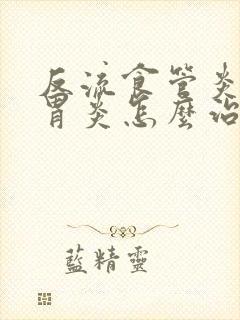 反流食管炎
胃炎怎麼治
藍精靈